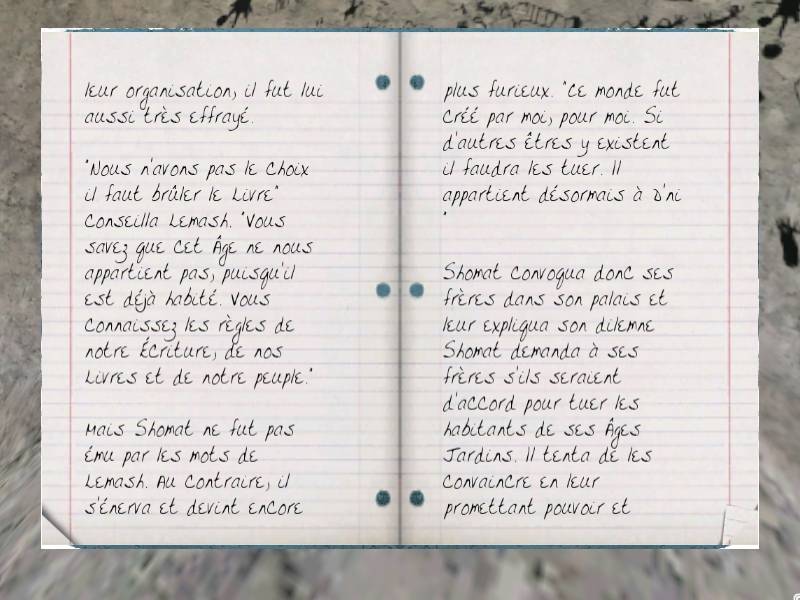 leur organisation, il fut lui
aussi très effrayé.
"Nous n'avons pas le choix
il faut brûler le Livre"
conseilla Lemash. "Vous
savez que cet Âge ne nous
appartient pas, puisqu'il
est déjà habité. Vous
connaissez les règles de
notre Écriture, de nos
Livres et de notre peuple."
Mais Shomat ne fut pas
ému par les mots de
Lemash. Au contraire, il
s'énerva et devint encore
plus furieux. "Ce monde fut
créé par moi, pour moi. Si
d'autres êtres y existent
il faudra les tuer. Il
appartient désormais à D'ni
"
Shomat convoqua donc ses
frères dans son palais et
leur expliqua son dilemne
Shomat demanda à ses
frères s'ils seraient
d'accord pour tuer les
habitants de ses Âges
Jardins. Il tenta de les
convaincre en leur
promettant pouvoir et